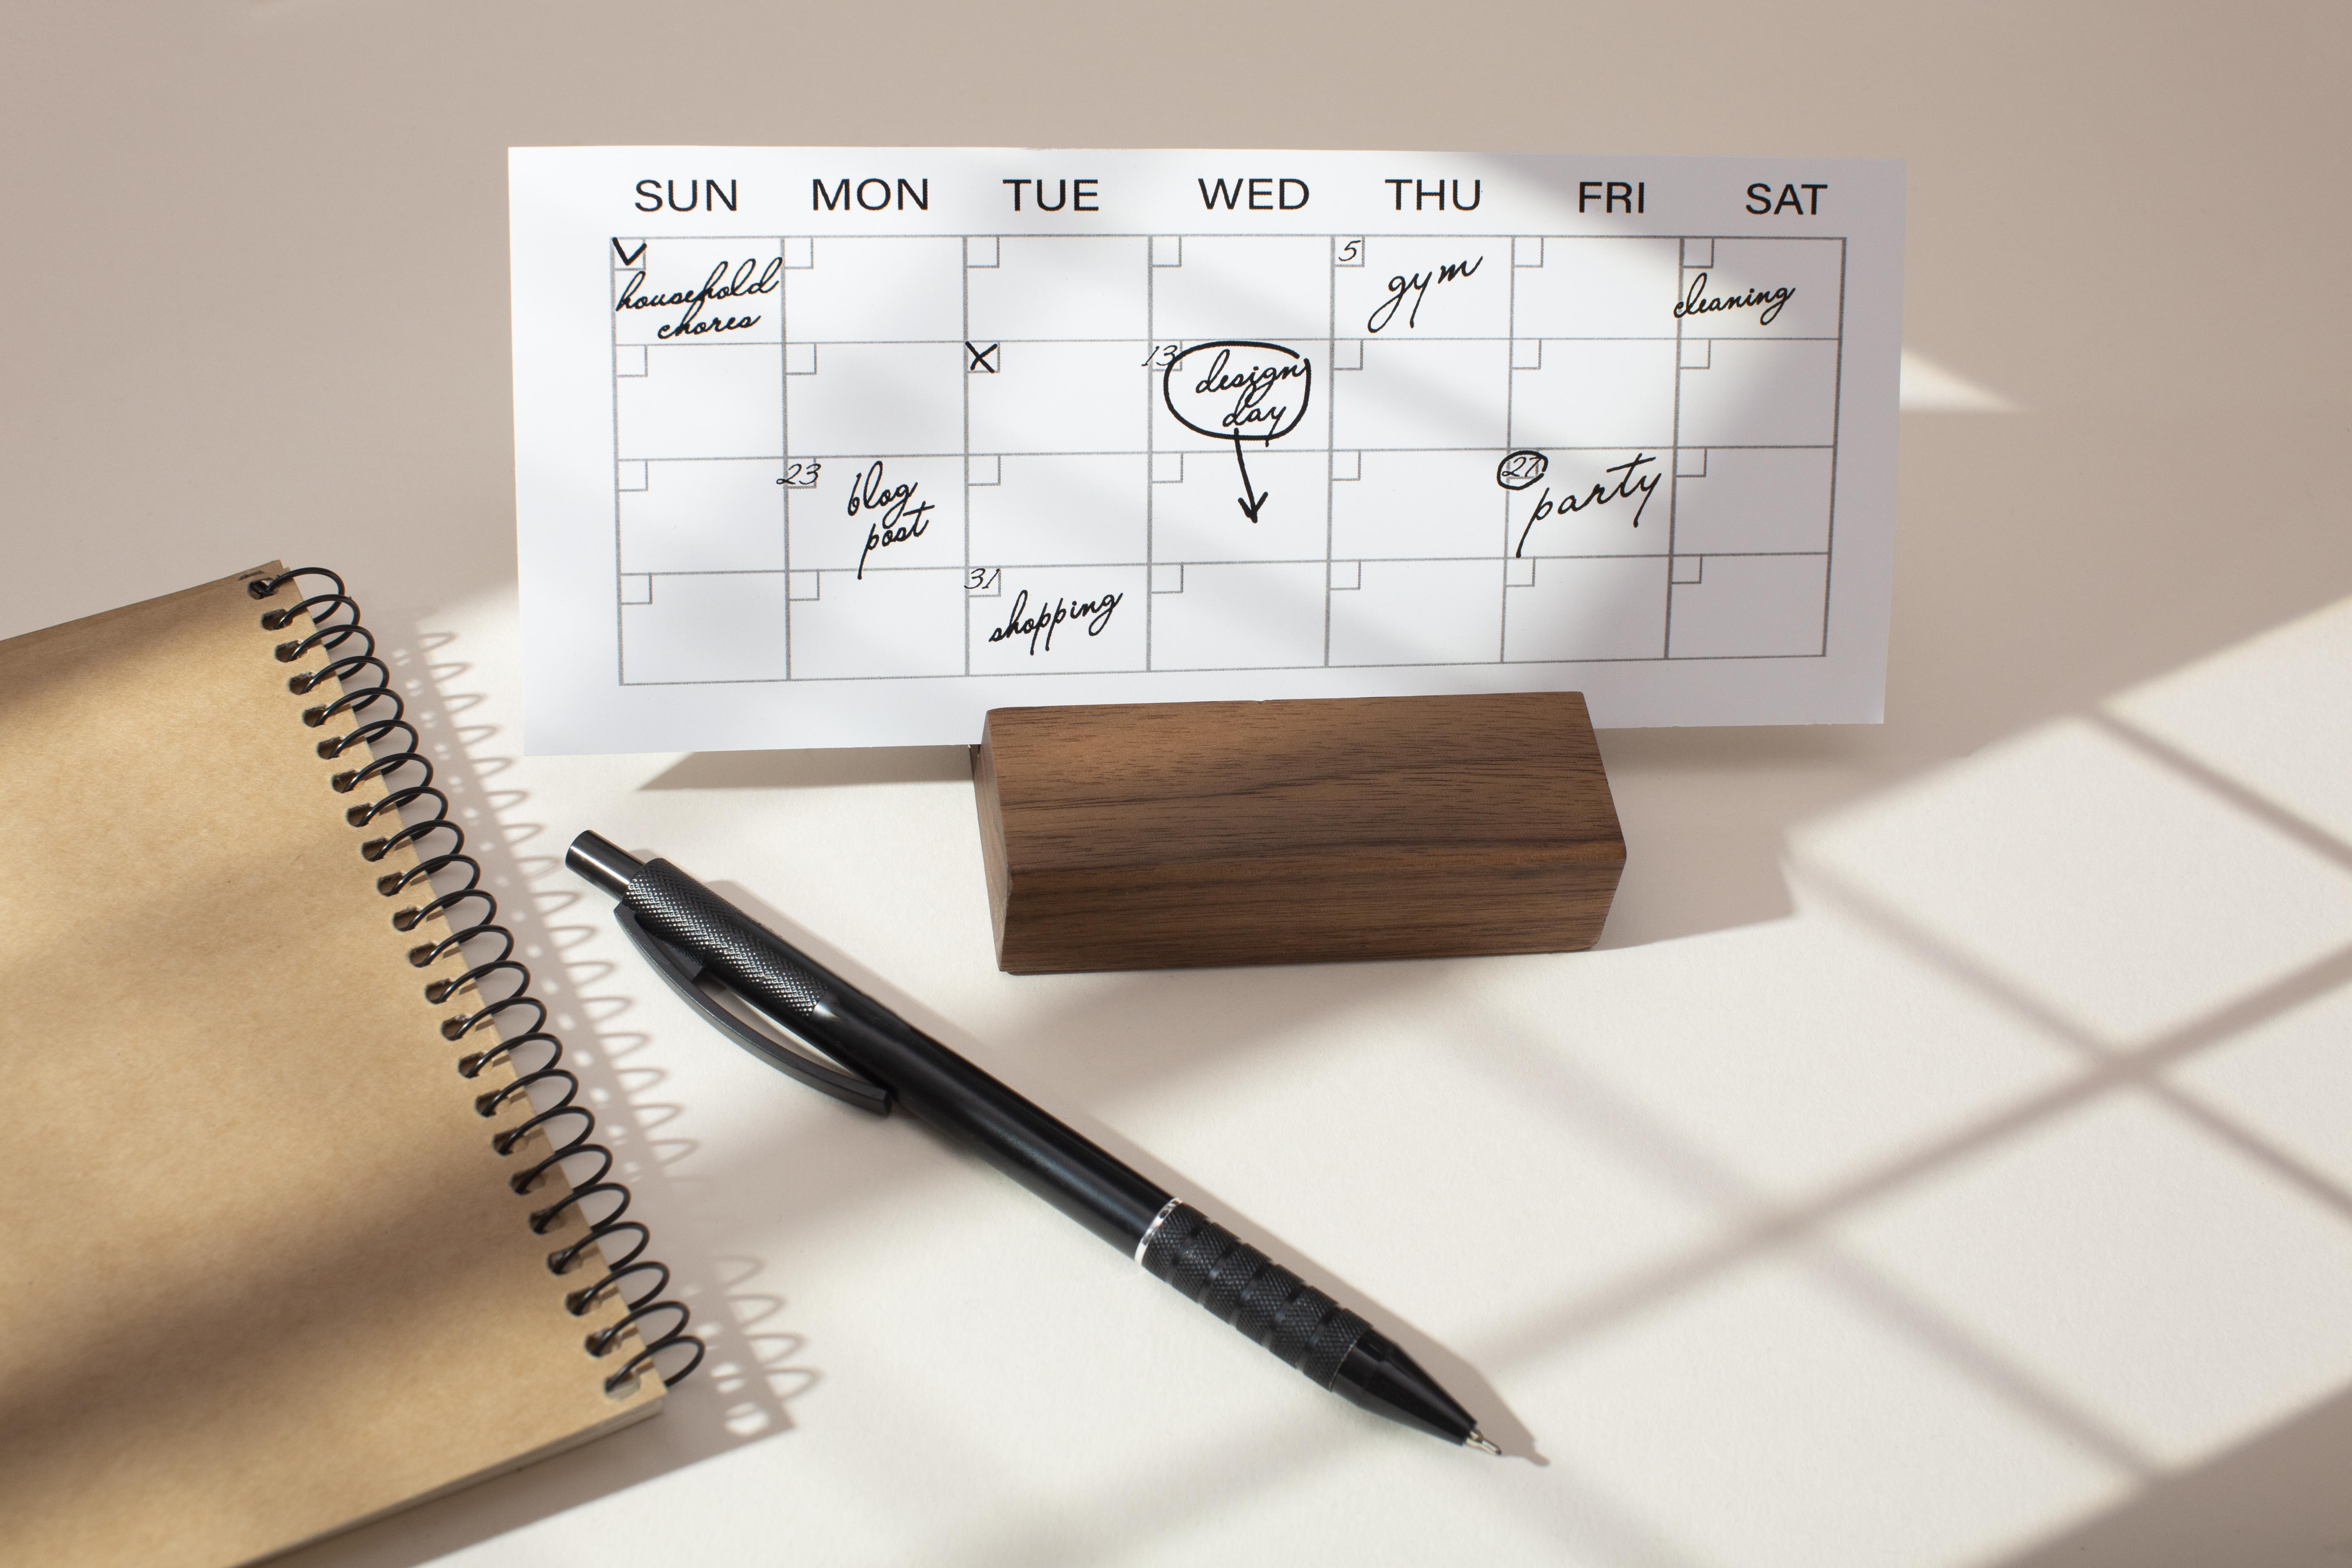 SUN MON TUE WED THU FRI SAT
household
chores
5
gym
cleaning
13
design
day
23
blog
post
27
party
31
shopping